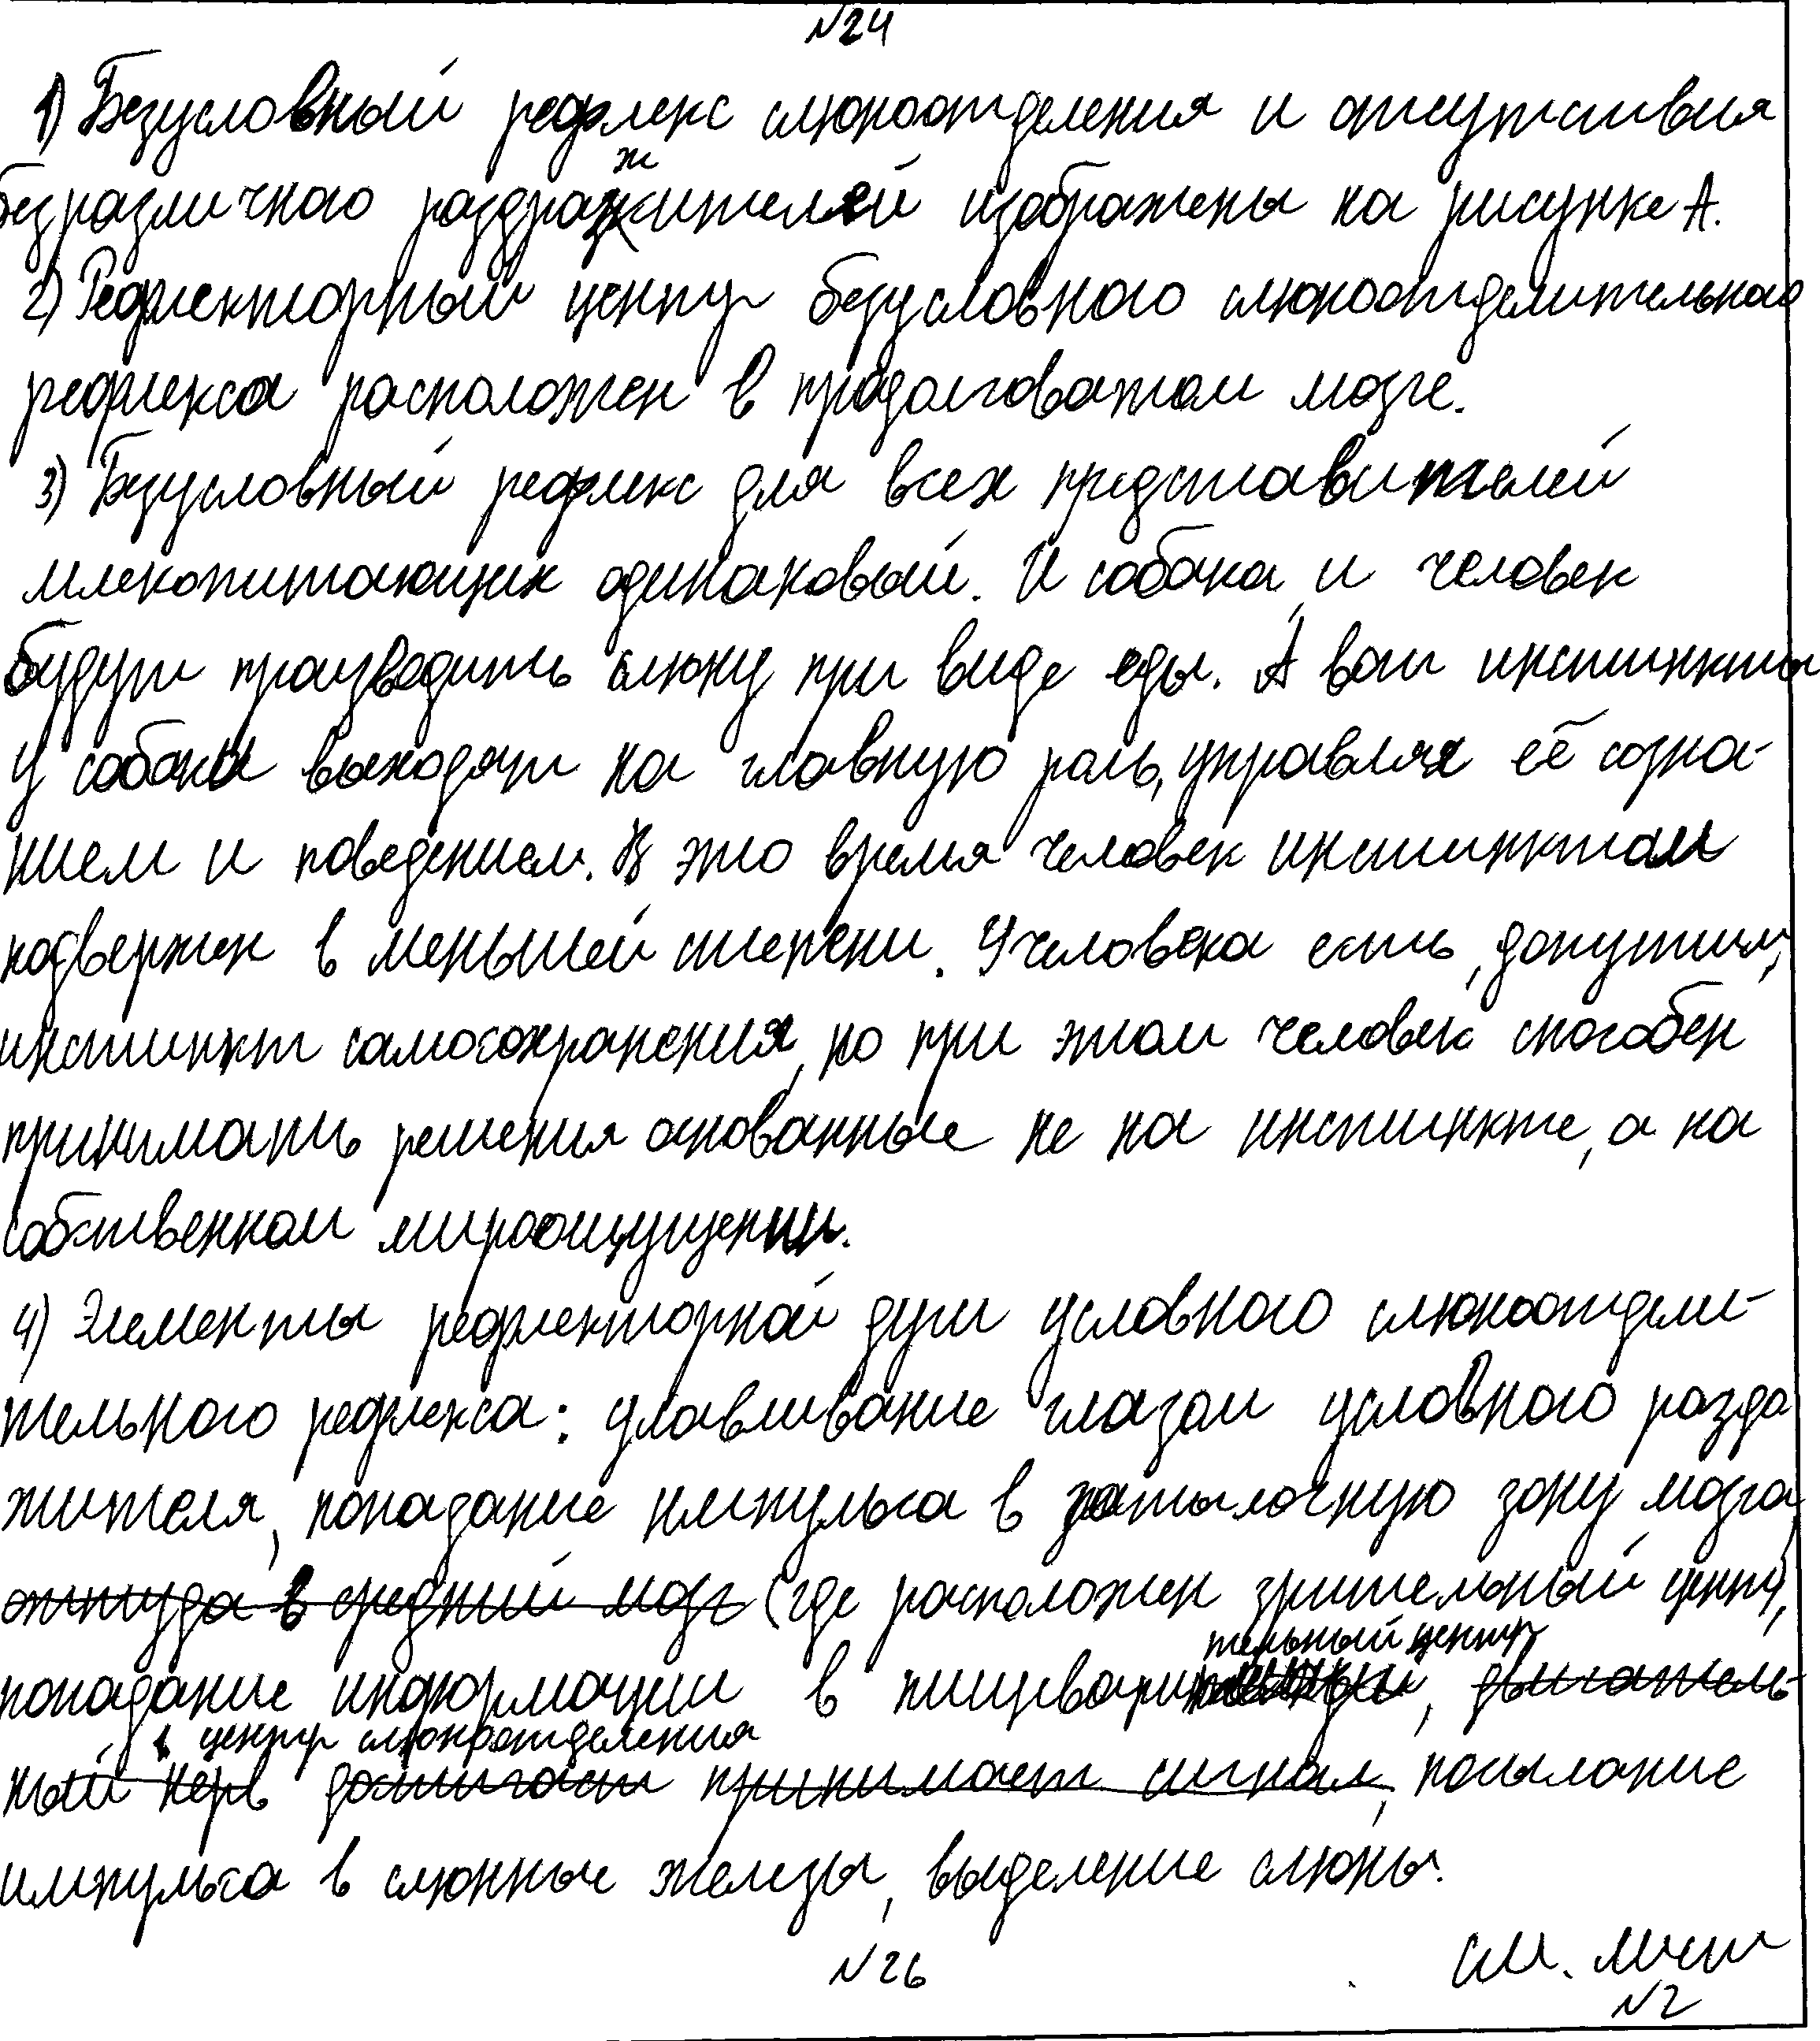 №24
1) Безусловный рефлекс слюноотделения и отсутствия
безразличного раздражителей изображены на рисунке А.
2) Рефлекторный центр безусловного слюноотделительного
рефлекса расположен в продолговатом мозге.
3) Безусловный рефлекс для всех представителей
млекопитающих одинаковый. И собака, и человек
будут производить слюну при виде еды. А вот инстинкты
у собаки выходят на главную роль, управляя её созна-
нием и поведением. В это время человек инстинктам
подвержен в меньшей степени. У человека есть, допустим,
инстинкт самосохранения, но при этом человек способен
принимать решения основанные не на инстинкте, а на
собственном мироощущении.
4) Элементы рефлекторной дуги условного слюноотдели-
тельного рефлекса: улавливание глазом условного раздо
жителя, попадание импульса в затылочную зону мозга,
оттуда в средний мозг (где расположен зрительный центр),
попадание информации в пищеварительный центр, двигатель-
ный нерв в центр слюноотделения принимает сигнал, посылание
импульса в слюнные железы, выделение слюны.
№26
см. лист
№2